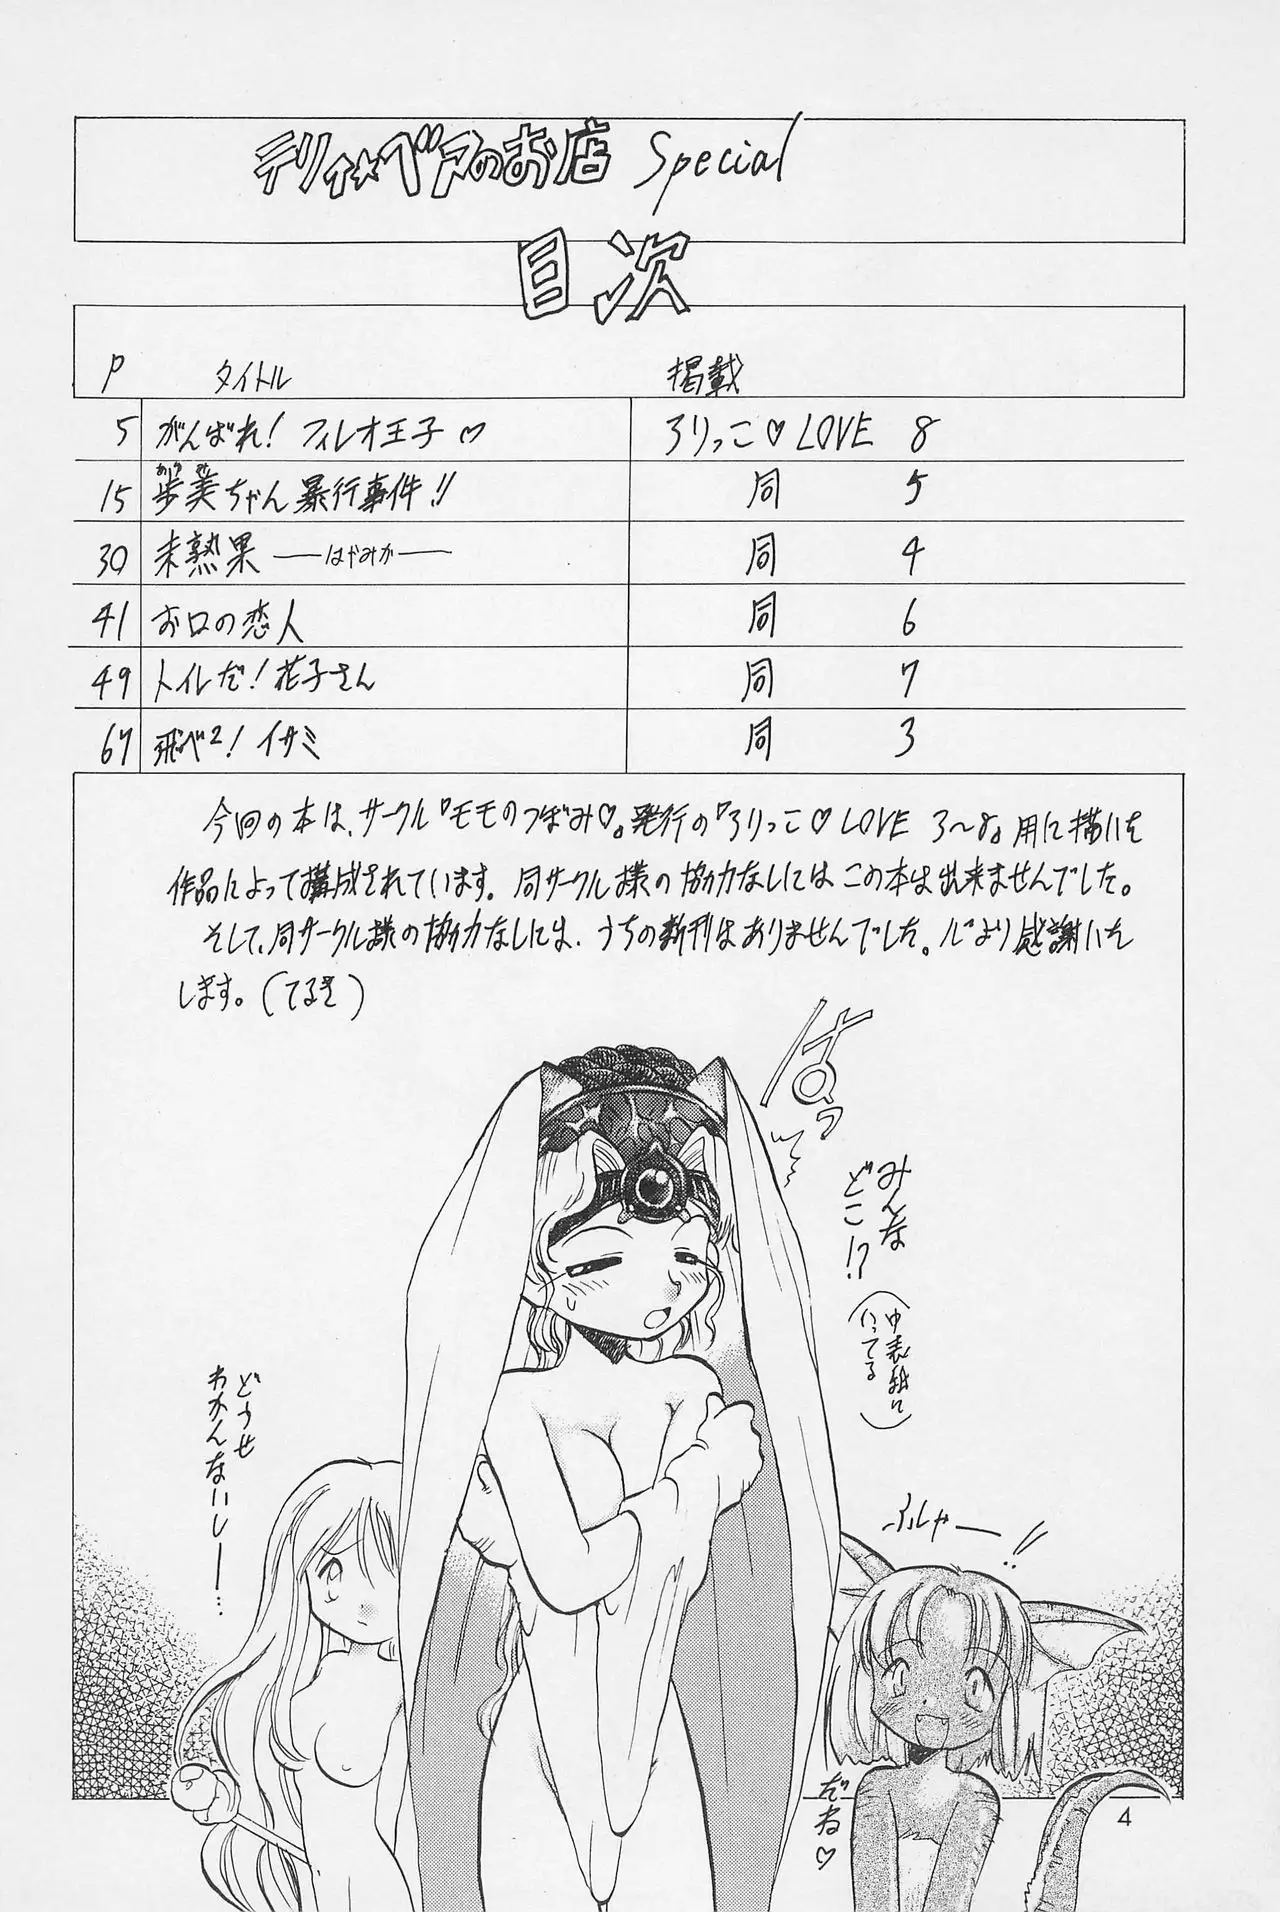 テリィ★ベアのお店 Special
目次
P タイトル 掲載
5 がんばれ！フィレオ王子♡ ろりっこ♡LOVE 8
15 歩美ちゃん暴行事件!! 同 5
30 未熟果 ──はやみか── 同 4
41 お口の恋人 同 6
49 トイレだ！花子さん 同 7
67 飛べ2！イサミ 同 3
今回の本は、サークル『モモのつぼみ♡』発行の『ろりっこ♡LOVE 3〜8』用に描いた
作品によって構成されています。同サークル様の協力なしにはこの本は出来ませんでした。
そして、同サークル様の協力なしには、うちの新刊はありませんでした。心より感謝いた
します。(てるき)
はっ
みんな
どこ!?
(中表紙に
いってる)
どうせ
わかんないしー…
ふしゃー!!
だね♡
4